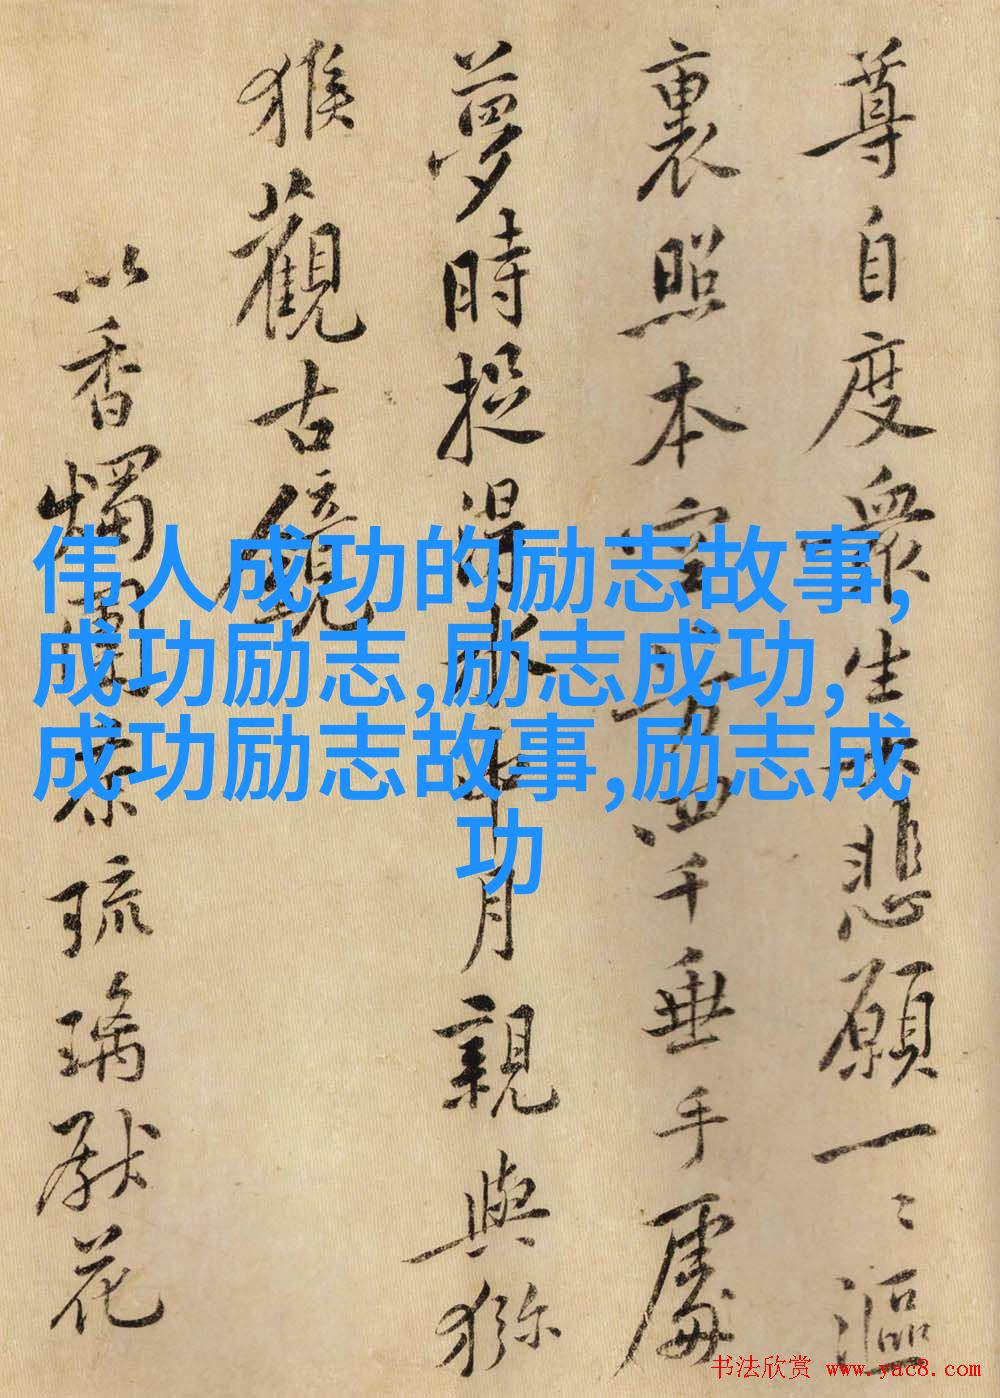 尊自度衆生大悲願一〻漚
裏照本空方四千垂手處
夢時捉得水中月親與獼
猴觀古鏡
以香燭團茶琉璃獻花
伟人成功的励志故事,
成功励志,励志成功,
成功励志故事,励志成
功
书法欣赏 www.yac8.com